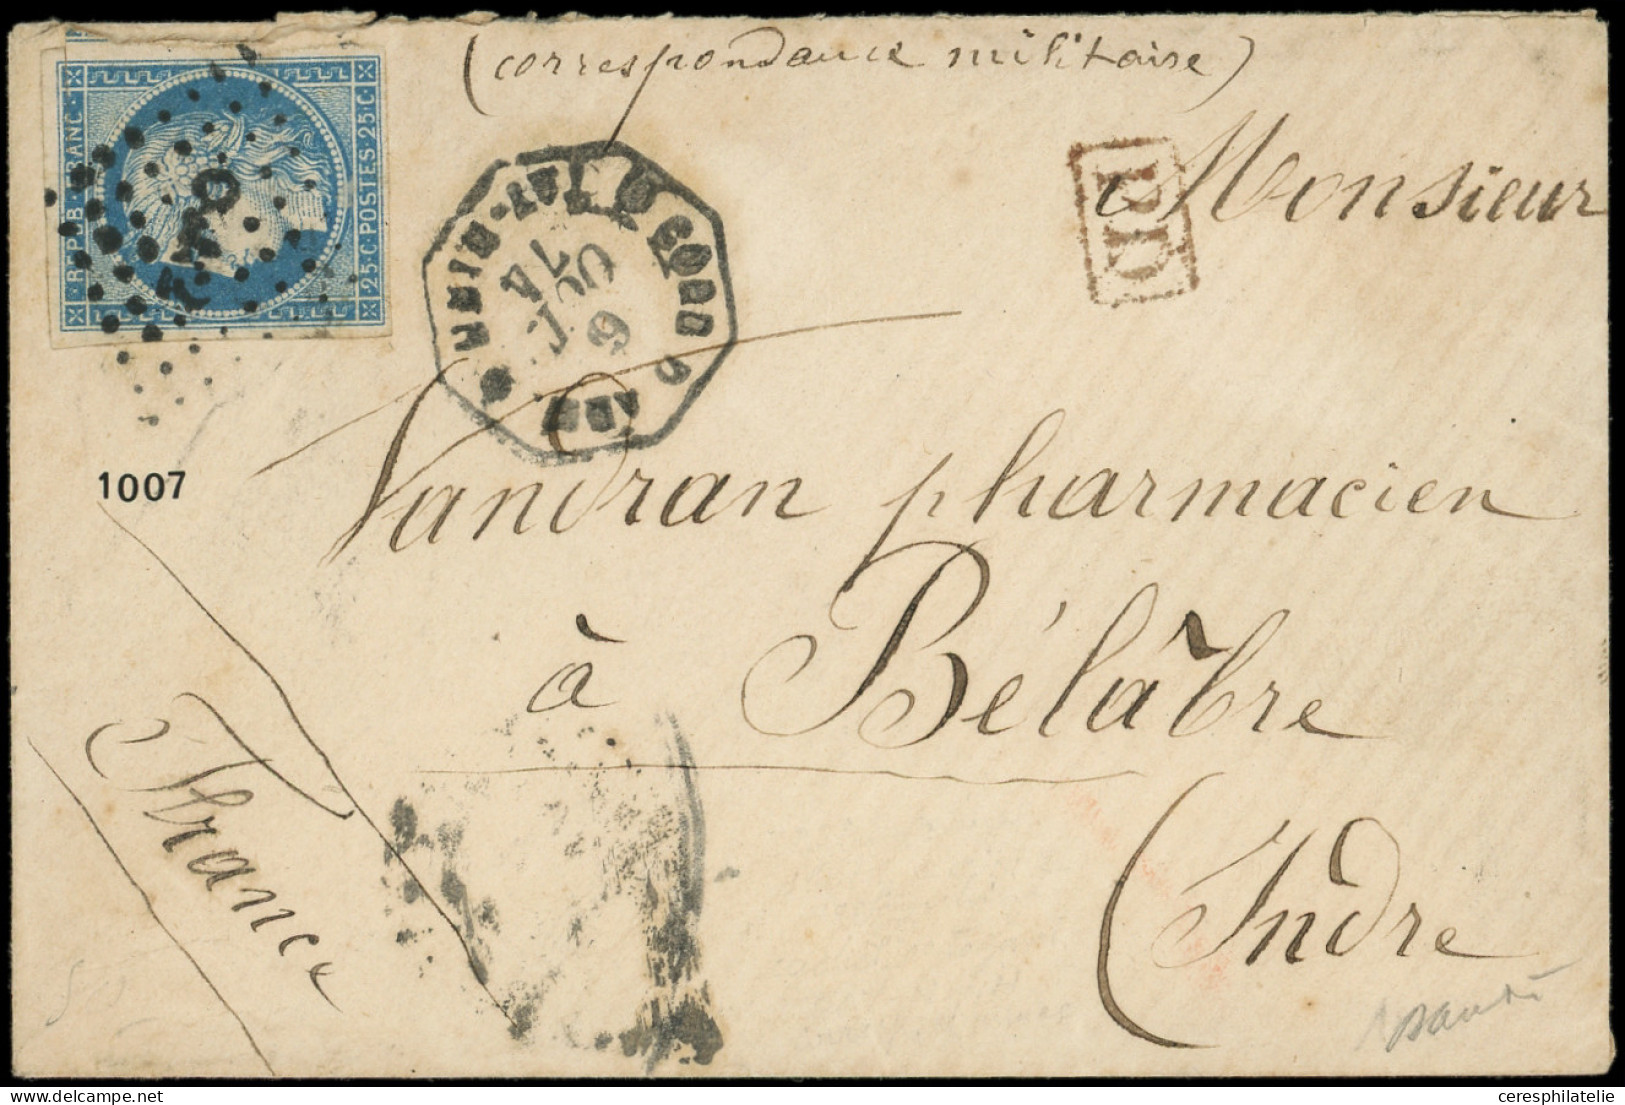 (correspondance militaire)
REPUB. FRANC.
25.C.POSTES.25.C.
PD
Monsieur
OCT.
6
1007
Vandran pharmacien
à Bélâbre
(Indre
France
ceresphilatelie.com